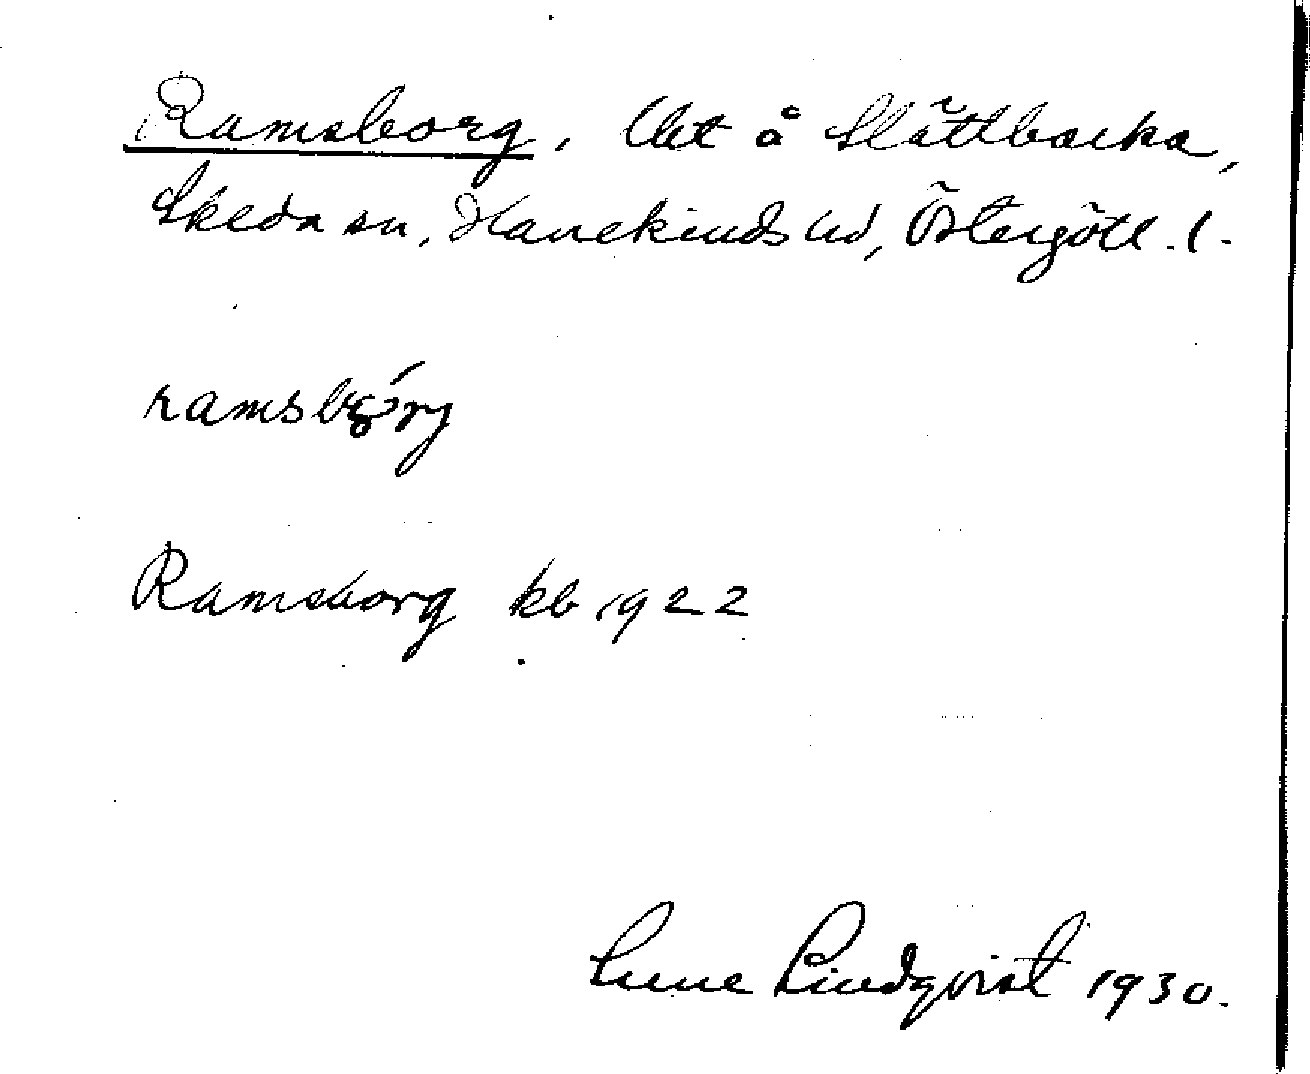 Ramsborg, lht å Slättbacka,
Skeda sn, Hanekinds hd, Östergötl. l.
Ramsborg kb 1922
Sune Lindqvist 1930.